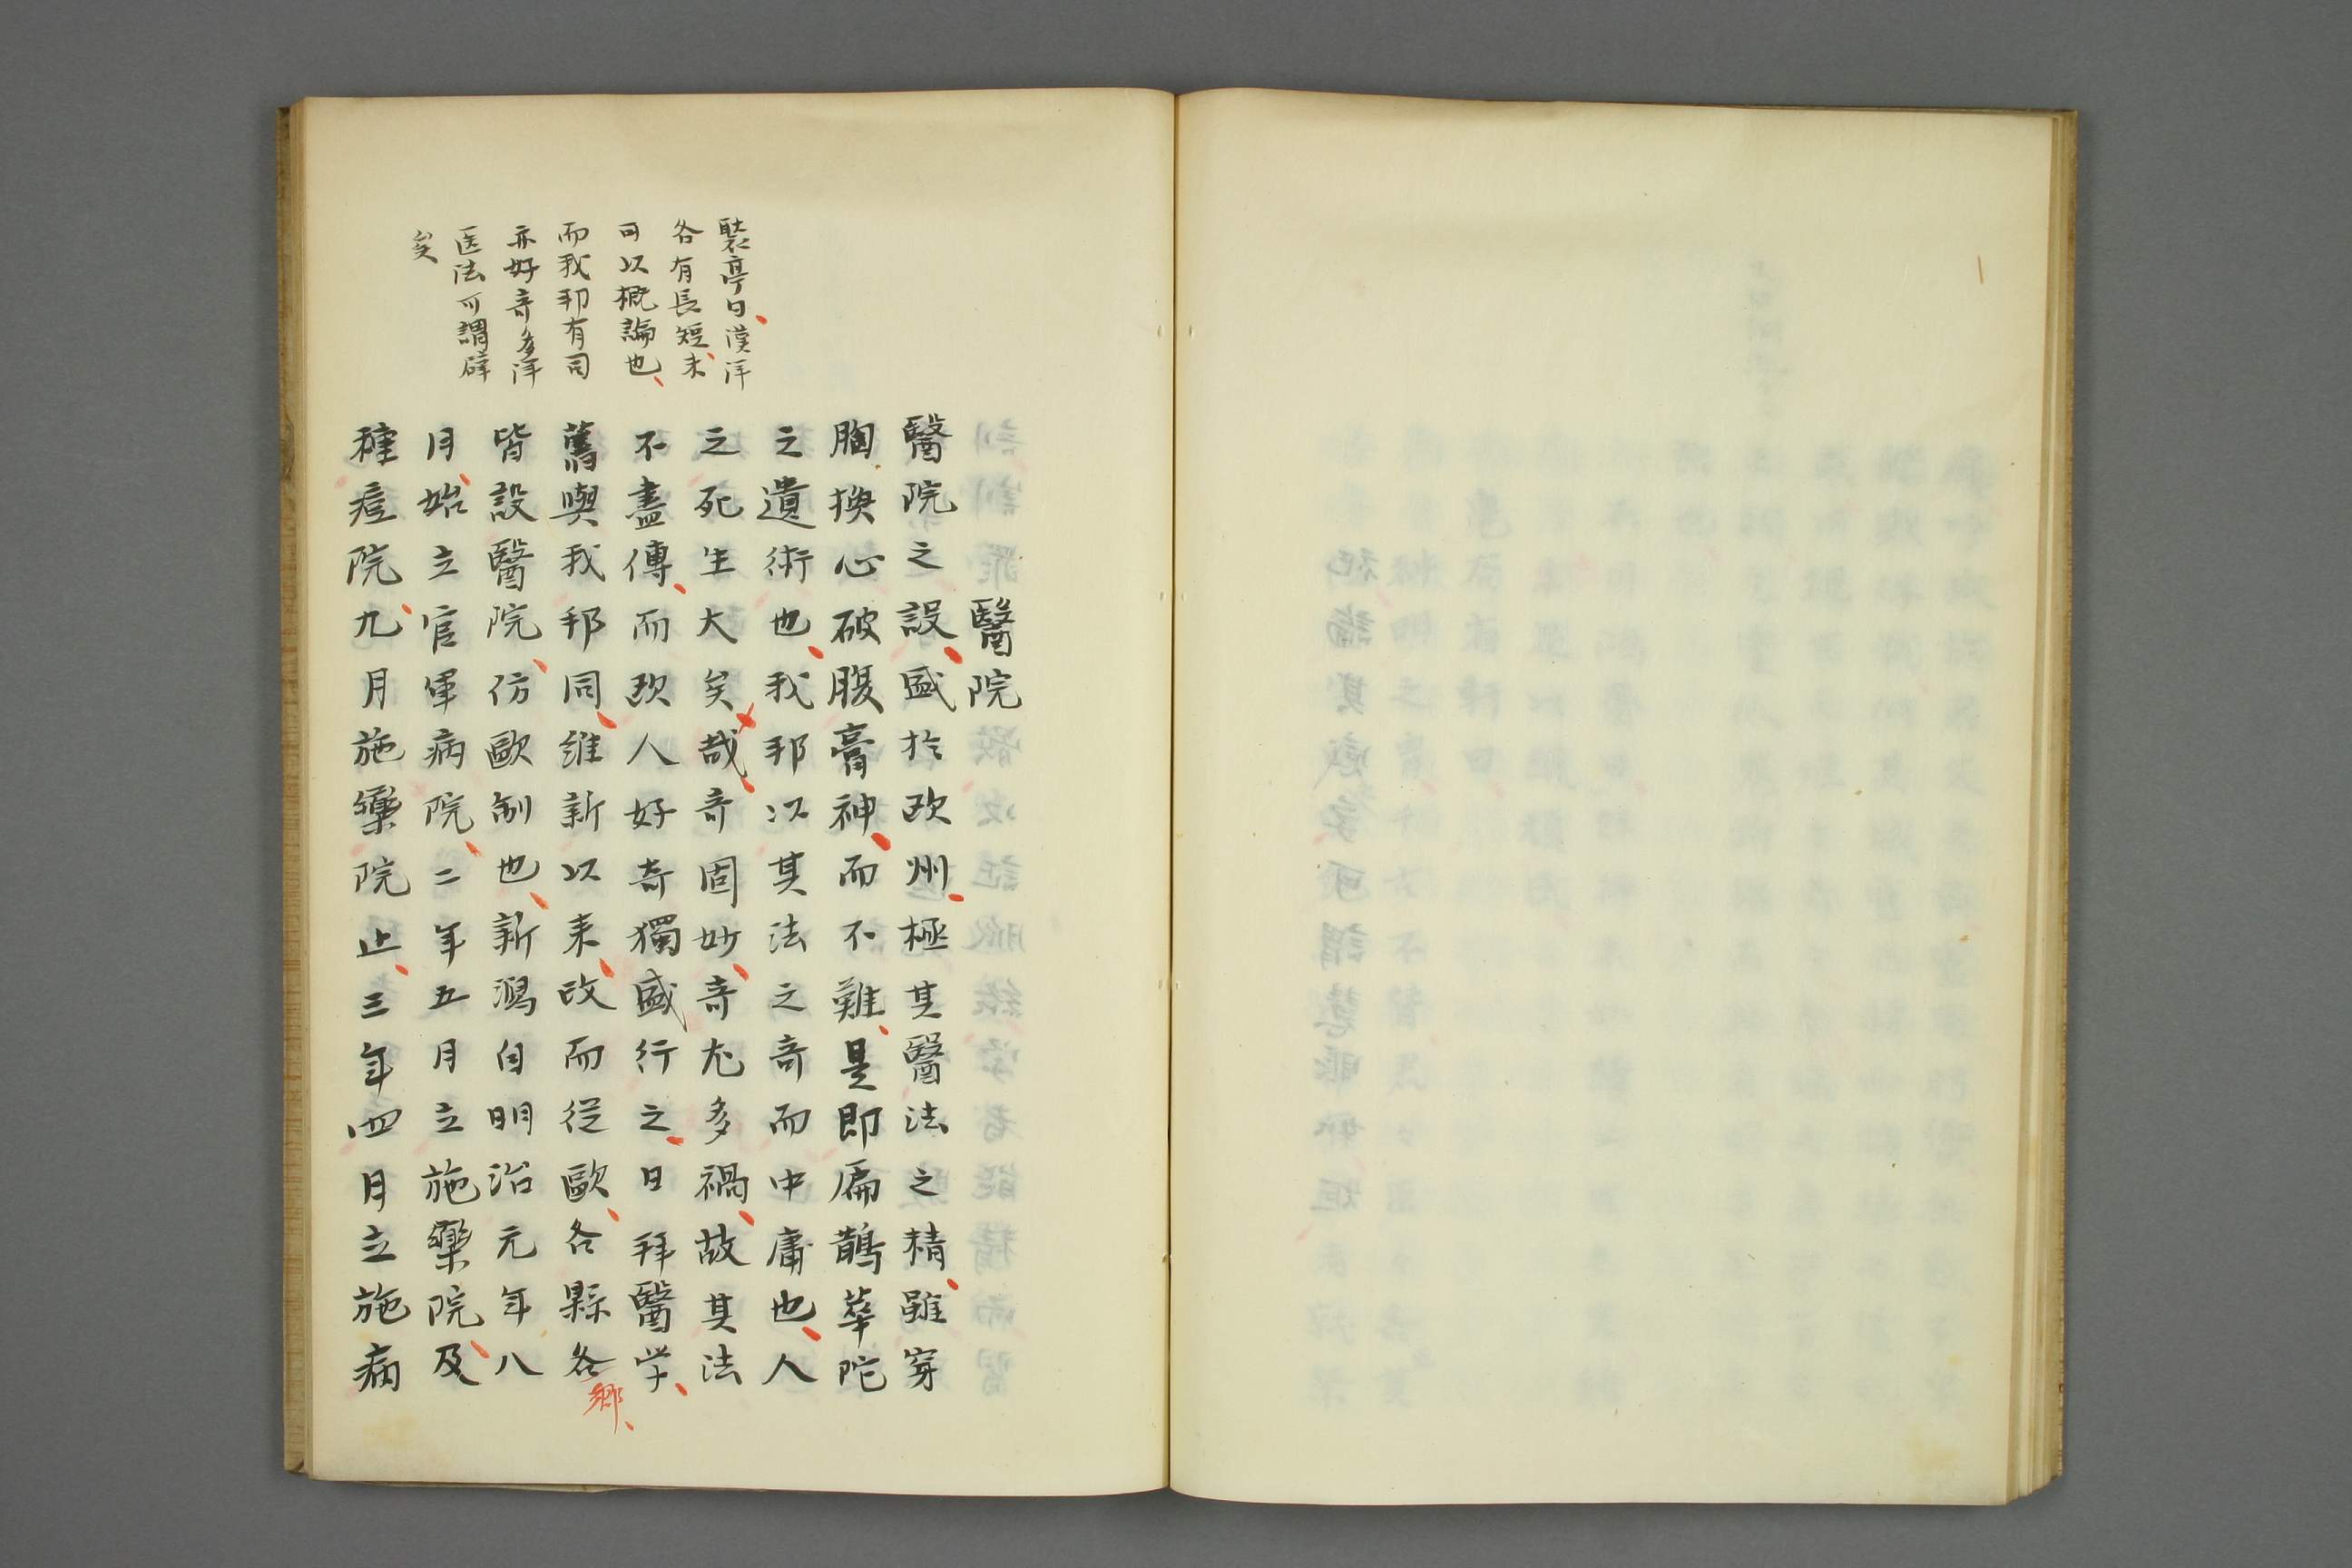 醫院
醫院之設、盛於欧州、極其醫法之精、雖穿
胸換心破腹膏神、而不難、是即扁鵲華陀
之遺術也、我邦以其法之奇而中庸也、人
之死生大矣哉、奇固妙、奇尤多禍、故其法
不盡傳、而欧人好奇獨盛行之、日拜醫学、
舊與我邦同、維新以来、改而從歐、各縣各
鄉、
皆設醫院、仿歐制也、新潟自明治元年八
月、始立官軍病院、二年五月立施藥院、及
種痘院、九月施藥院止、三年四月立施病
聚亭曰、漢洋
各有長短、未
可以概論也、
而我邦有司
亦好奇多洋
医法可謂癖
矣